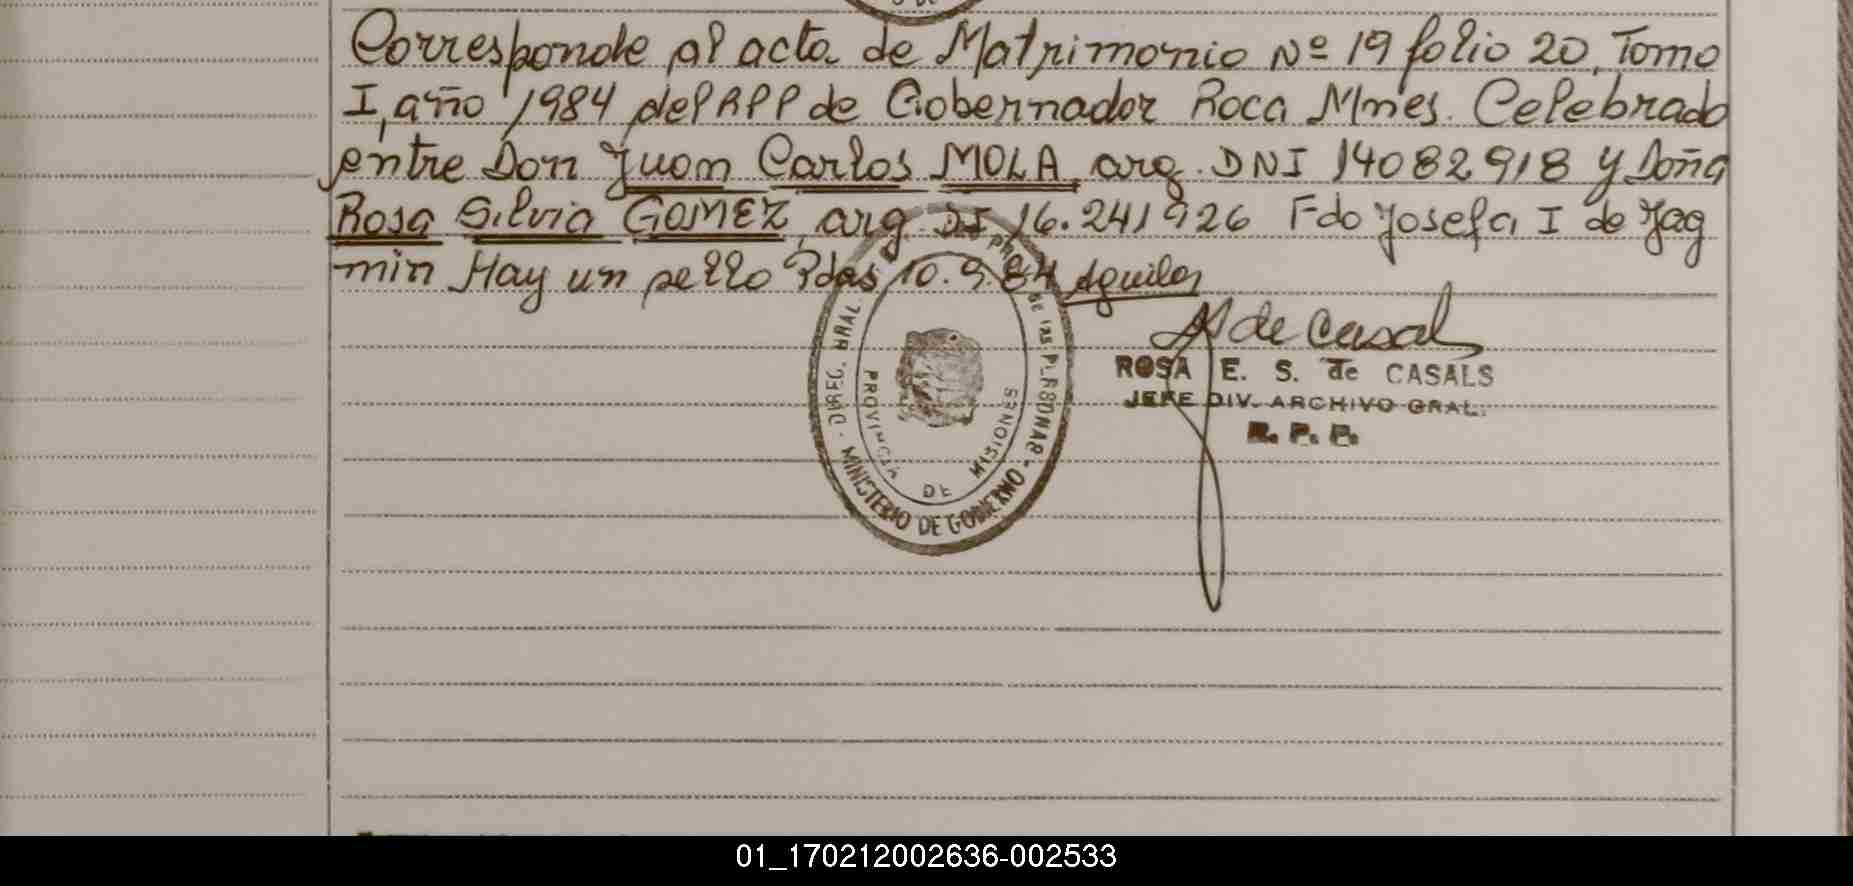 Corresponde al acta de Matrimonio Nº 19 folio 20, Tomo
I, año 1984 del RPP de Gobernador Roca Mnes. Celebrado
entre Don Juan Carlos MOLA, arg. DNI 14082918 y Doña
Rosa Silvia GOMEZ, arg. DI 16.241926 Fdo Josefa I de Jag
min Hay un sello Pdas 10.9.84 Aguilar
de Casal
ROSA E. S. de CASALS
JEFE DIV. ARCHIVO GRAL.
R. P. P.
DIREC. GRAL. DE LAS PERSONAS
MINISTERIO DE GOBIERNO
PROVINCIA DE MISIONES
01_170212002636-002533